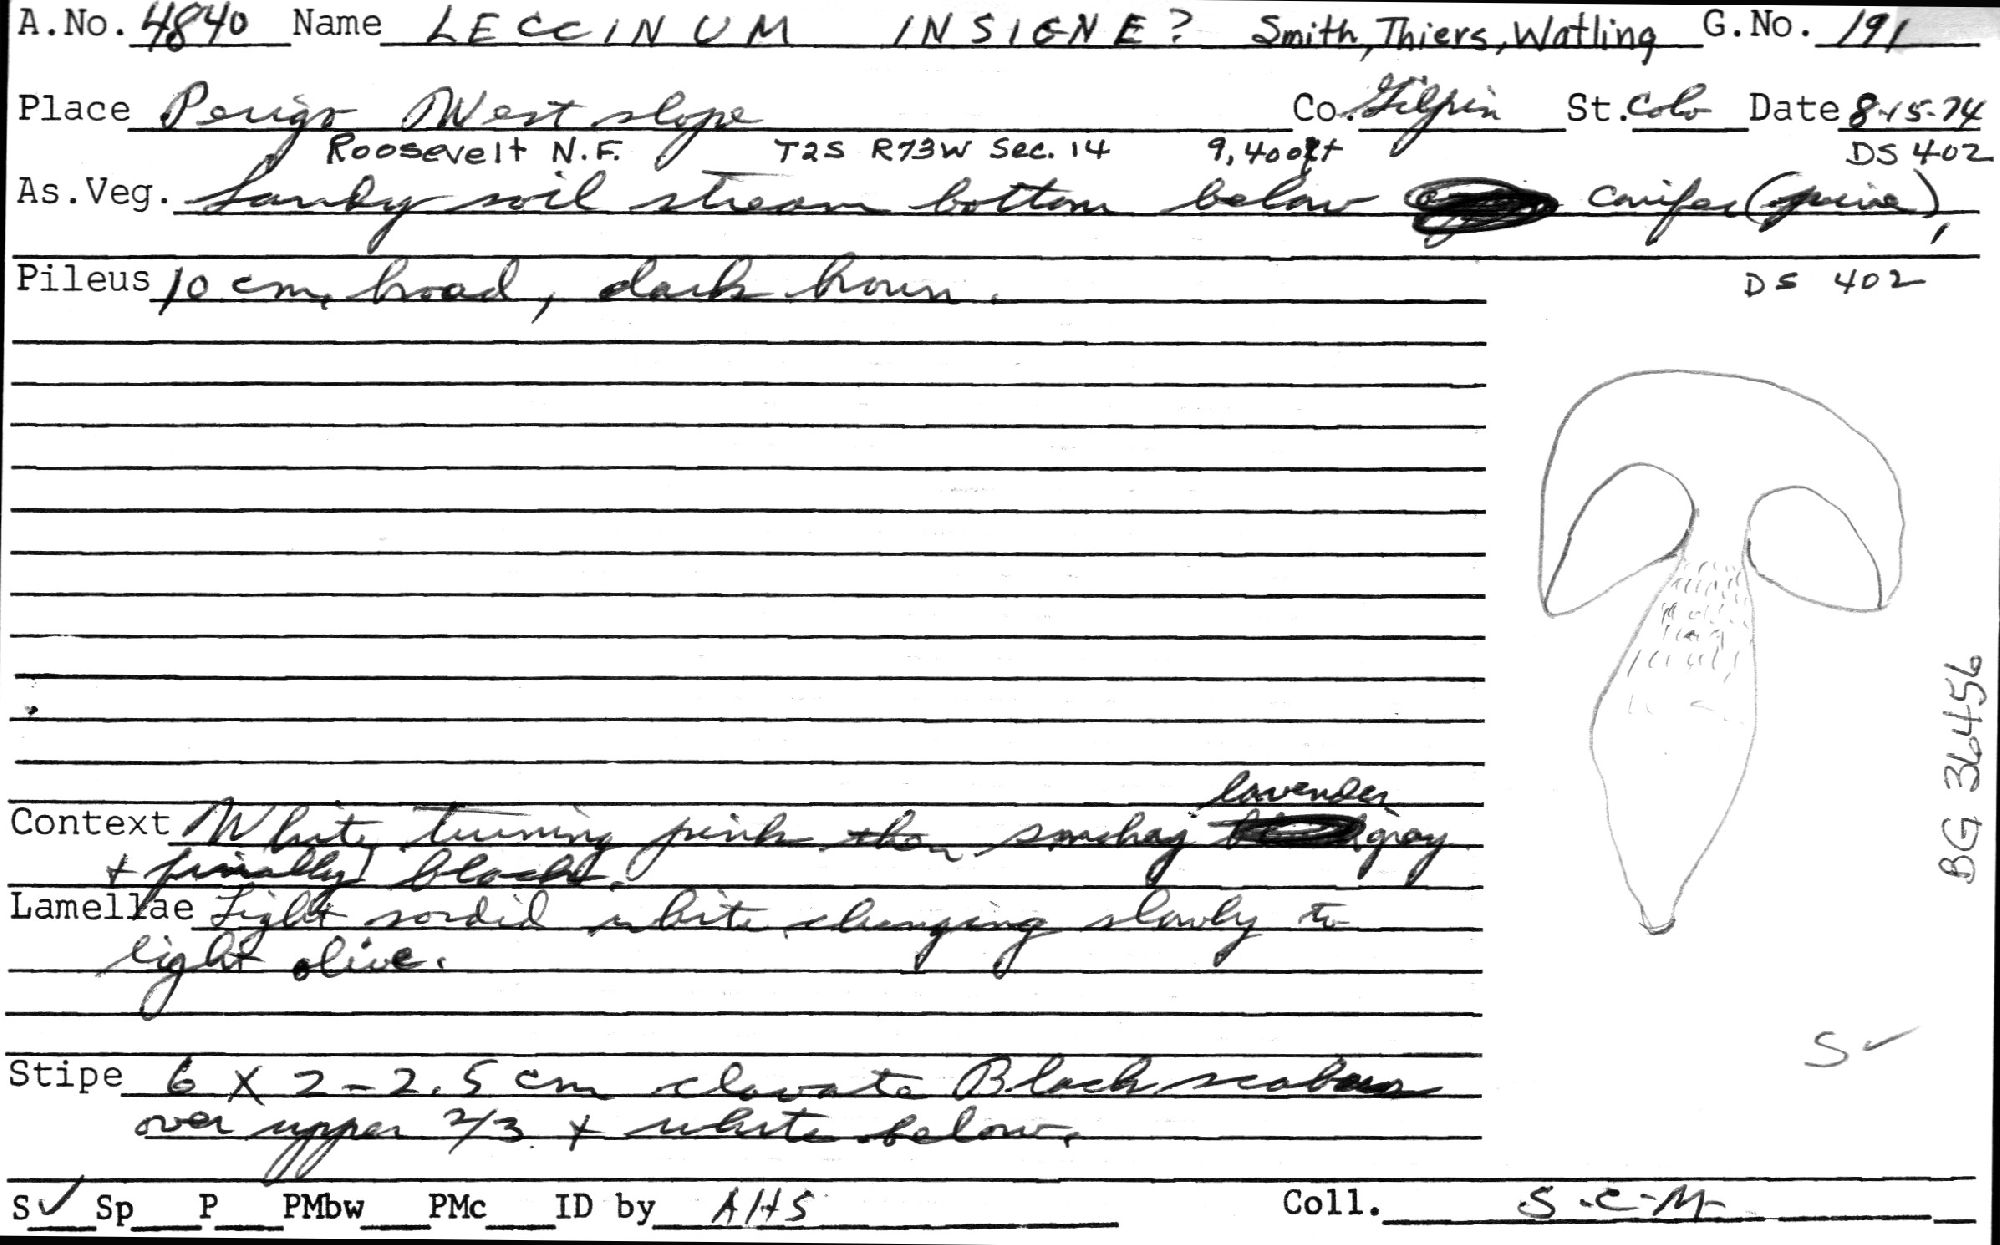 A.No. 4840 Name LECCINUM INSIGNE? Smith, Thiers, Watling G.No. 191
Place Perigo West slope Co. Gilpin St. Colo Date 8-15-74
Roosevelt N.F. T2S R73W Sec. 14 9,400ft DS 402
As.Veg. Sandy soil stream bottom below conifer (pine),
Pileus 10 cm, broad, dark brown. DS 402
lavender
Context White turning pink then smokey gray
+ finally black.
Lamellae Light sordid white changing slowly to
light olive.
BG 36456
S✓
Stipe 6 X 2-2.5 cm clavate Black scabers
over upper 2/3 + white below.
S✓ Sp P PMbw PMc ID by AHS Coll. S.C-M-